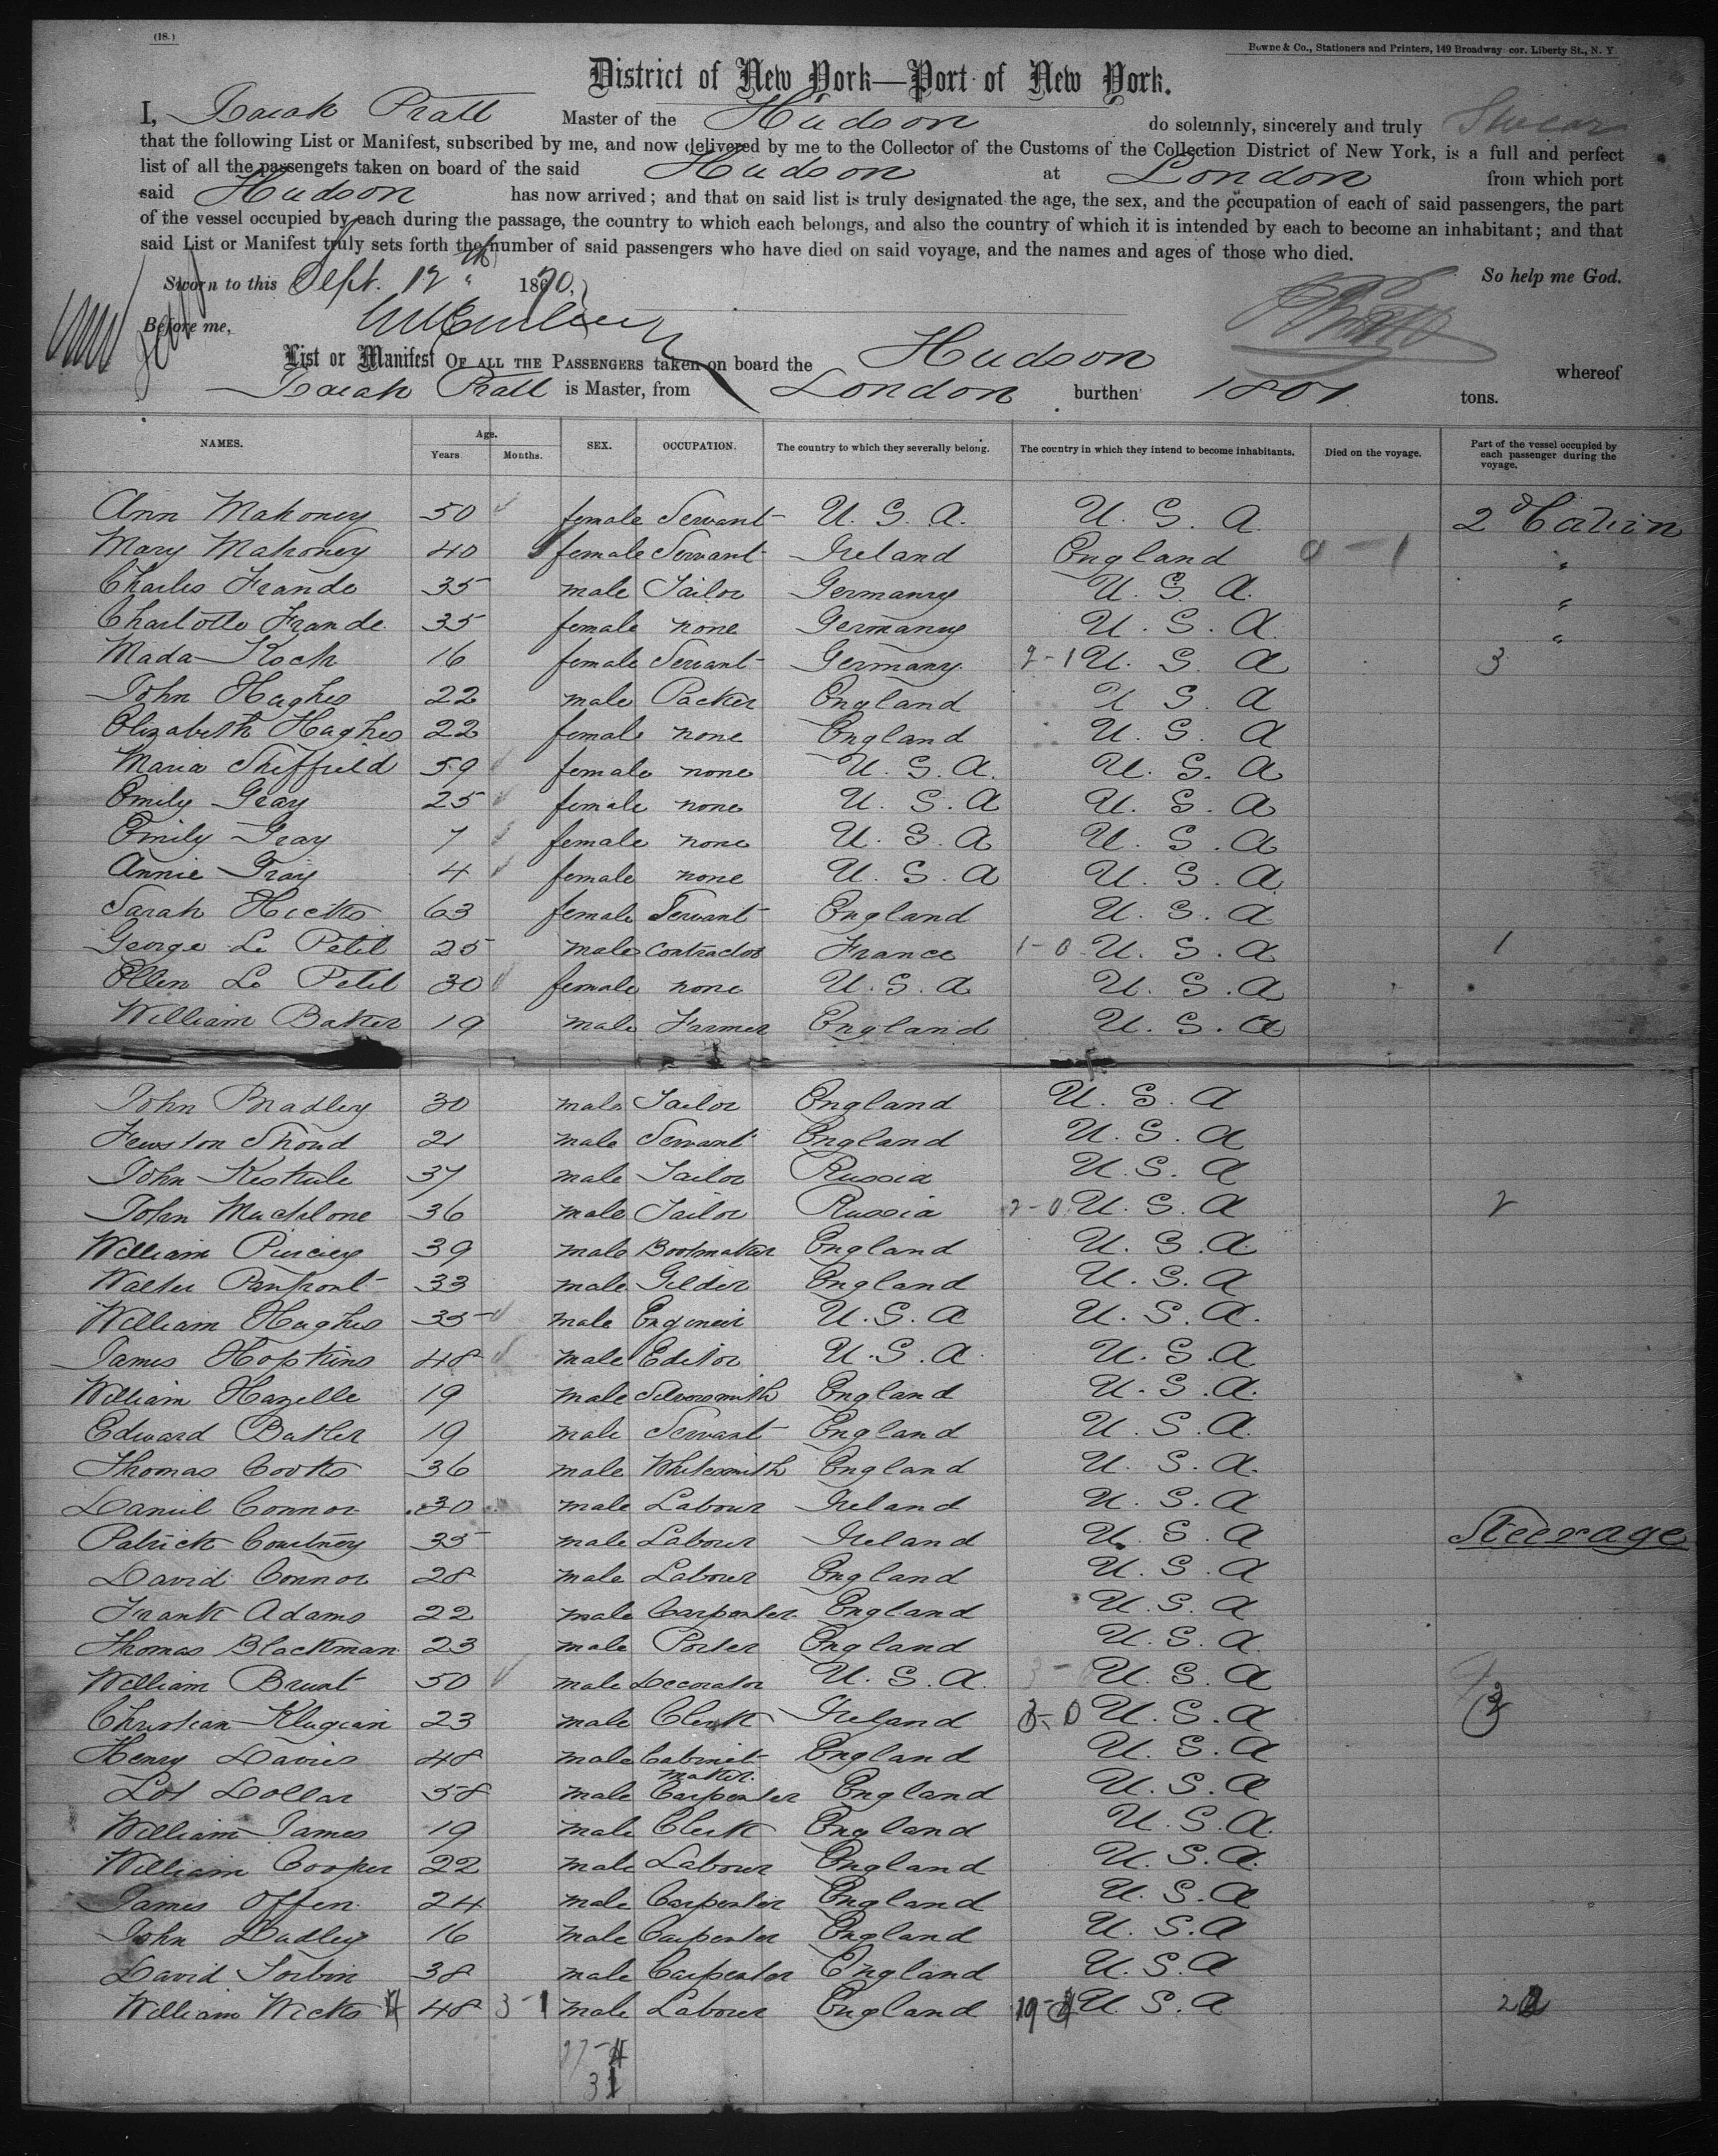 (18.)
Bowne & Co., Stationers and Printers, 149 Broadway cor. Liberty St., N. Y.
District of New York—Port of New York.
I, Isaiah Pratt Master of the Hudson do solemnly, sincerely and truly Swear
that the following List or Manifest, subscribed by me, and now delivered by me to the Collector of the Customs of the Collection District of New York, is a full and perfect
list of all the passengers taken on board of the said Hudson at London from which port
said Hudson has now arrived; and that on said list is truly designated the age, the sex, and the occupation of each of said passengers, the part
of the vessel occupied by each during the passage, the country to which each belongs, and also the country of which it is intended by each to become an inhabitant; and that
said List or Manifest truly sets forth the number of said passengers who have died on said voyage, and the names and ages of those who died.
Sworn to this Sept. 12th 1870, So help me God.
Before me, I Pratt
List or Manifest OF ALL THE PASSENGERS taken on board the Hudson whereof
Isaiah Pratt is Master, from London burthen 1801 tons.
NAMES. Age. Years Months. SEX. OCCUPATION. The country to which they severally belong. The country in which they intend to become inhabitants. Died on the voyage. Part of the vessel occupied by each passenger during the voyage.
Ann Mahoney 50 female Servant U. S. A. U. S. A 2d Cabin
Mary Mahoney 40 female Servant Ireland England 0-1 "
Charles Frande 35 male Tailor Germany U. S. A. "
Charlotte Frande 35 female none Germany U. S. A "
Mada Koch 16 female Servant Germany 2-1 U. S. A 3
John Hughes 22 male Packer England U S A
Elizabeth Hughes 22 female none England U. S. A
Maria Sheffield 59 female none U. S. A. U. S. A
Emily Gray 25 female none U. S. A U. S. A
Emily Gray 7 female none U. S. A U. S. A
Annie Gray 4 female none U. S. A U. S. A
Sarah Hicks 63 female Servant England U. S. A
George Le Petit 25 male Contractor France 1-0 U. S. A 1
Ellen Le Petit 30 female none U. S. A U. S. A
William Baker 19 male Farmer England U. S. A
John Bradley 30 male Tailor England U. S. A
Fewston Shond 21 male Servant England U. S. A
John Kestule 37 male Tailor Russia U. S. A
John Muchlone 36 male Tailor Russia 2-0 U. S. A 2
William Piercey 39 male Bootmaker England U. S. A.
Walter Panfront 33 male Gilder England U. S. A
William Hughes 35 male Engineir U. S. A U. S. A.
James Hopkins 48 male Editor U. S. A U. S. A
William Hazelle 19 male Silversmith England U. S. A.
Edward Baker 19 male Servant England U. S. A.
Thomas Cooks 36 male Whitesmith England U. S. A.
Daniel Connor 30 male Labour Ireland U. S. A
Patrick Courtney 35 male Labour Ireland U. S. A Steerage
David Connor 28 male Labour England U. S. A
Frank Adams 22 male Carpenter England U. S. A
Thomas Blackman 23 male Porter England U. S. A
William Brunt 50 male Decorator U. S. A. U. S. A
Christian Klugian 23 male Clerk Ireland U. S. A
Henry Davies 48 male Cabinet maker England U. S. A
Lot Dollar 58 male Carpenter England U. S. A
William James 19 male Clerk England U. S. A.
William Cooper 22 male Labour England U. S. A.
James Offen 24 male Carpenter England U. S. A
John Dudley 16 male Carpenter England U. S. A
David Torbin 38 male Carpenter England U. S. A
William Wicks 48 3-1 male Labour England U. S. A